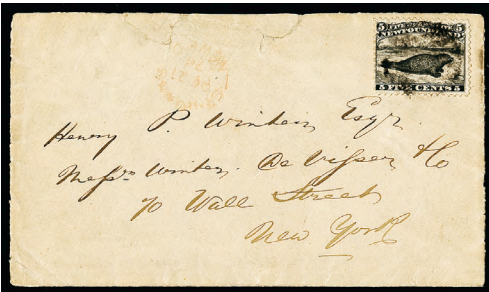 5 FIVE CENTS 5
NEWFOUNDLAND
5 FIVE CENTS 5
Henry P. Winters Esqr.
Messrs Winters. De Visser & Co
70 Wall Street
New York